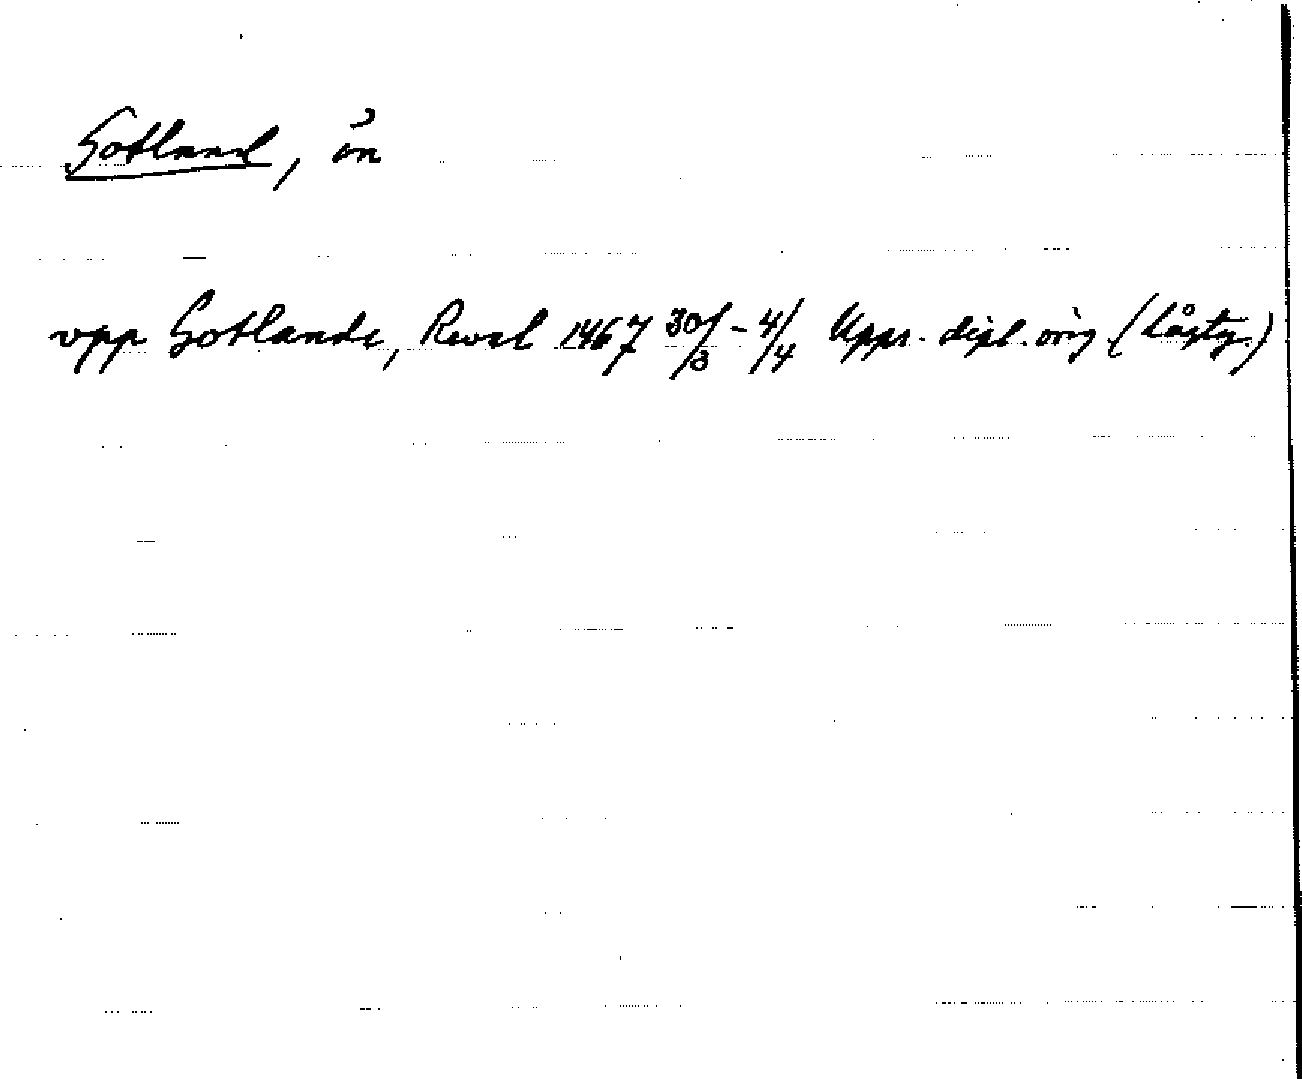 Gotland, ön
vpp Gotlande, Reval 1467 30/3 - 4/4 Upps. dipl. orig (Lågty.)